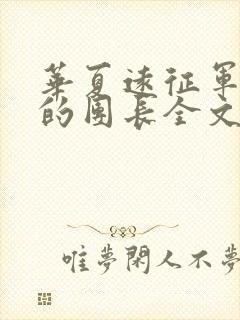 華夏遠征軍
的團長全文
唯夢閑人不夢